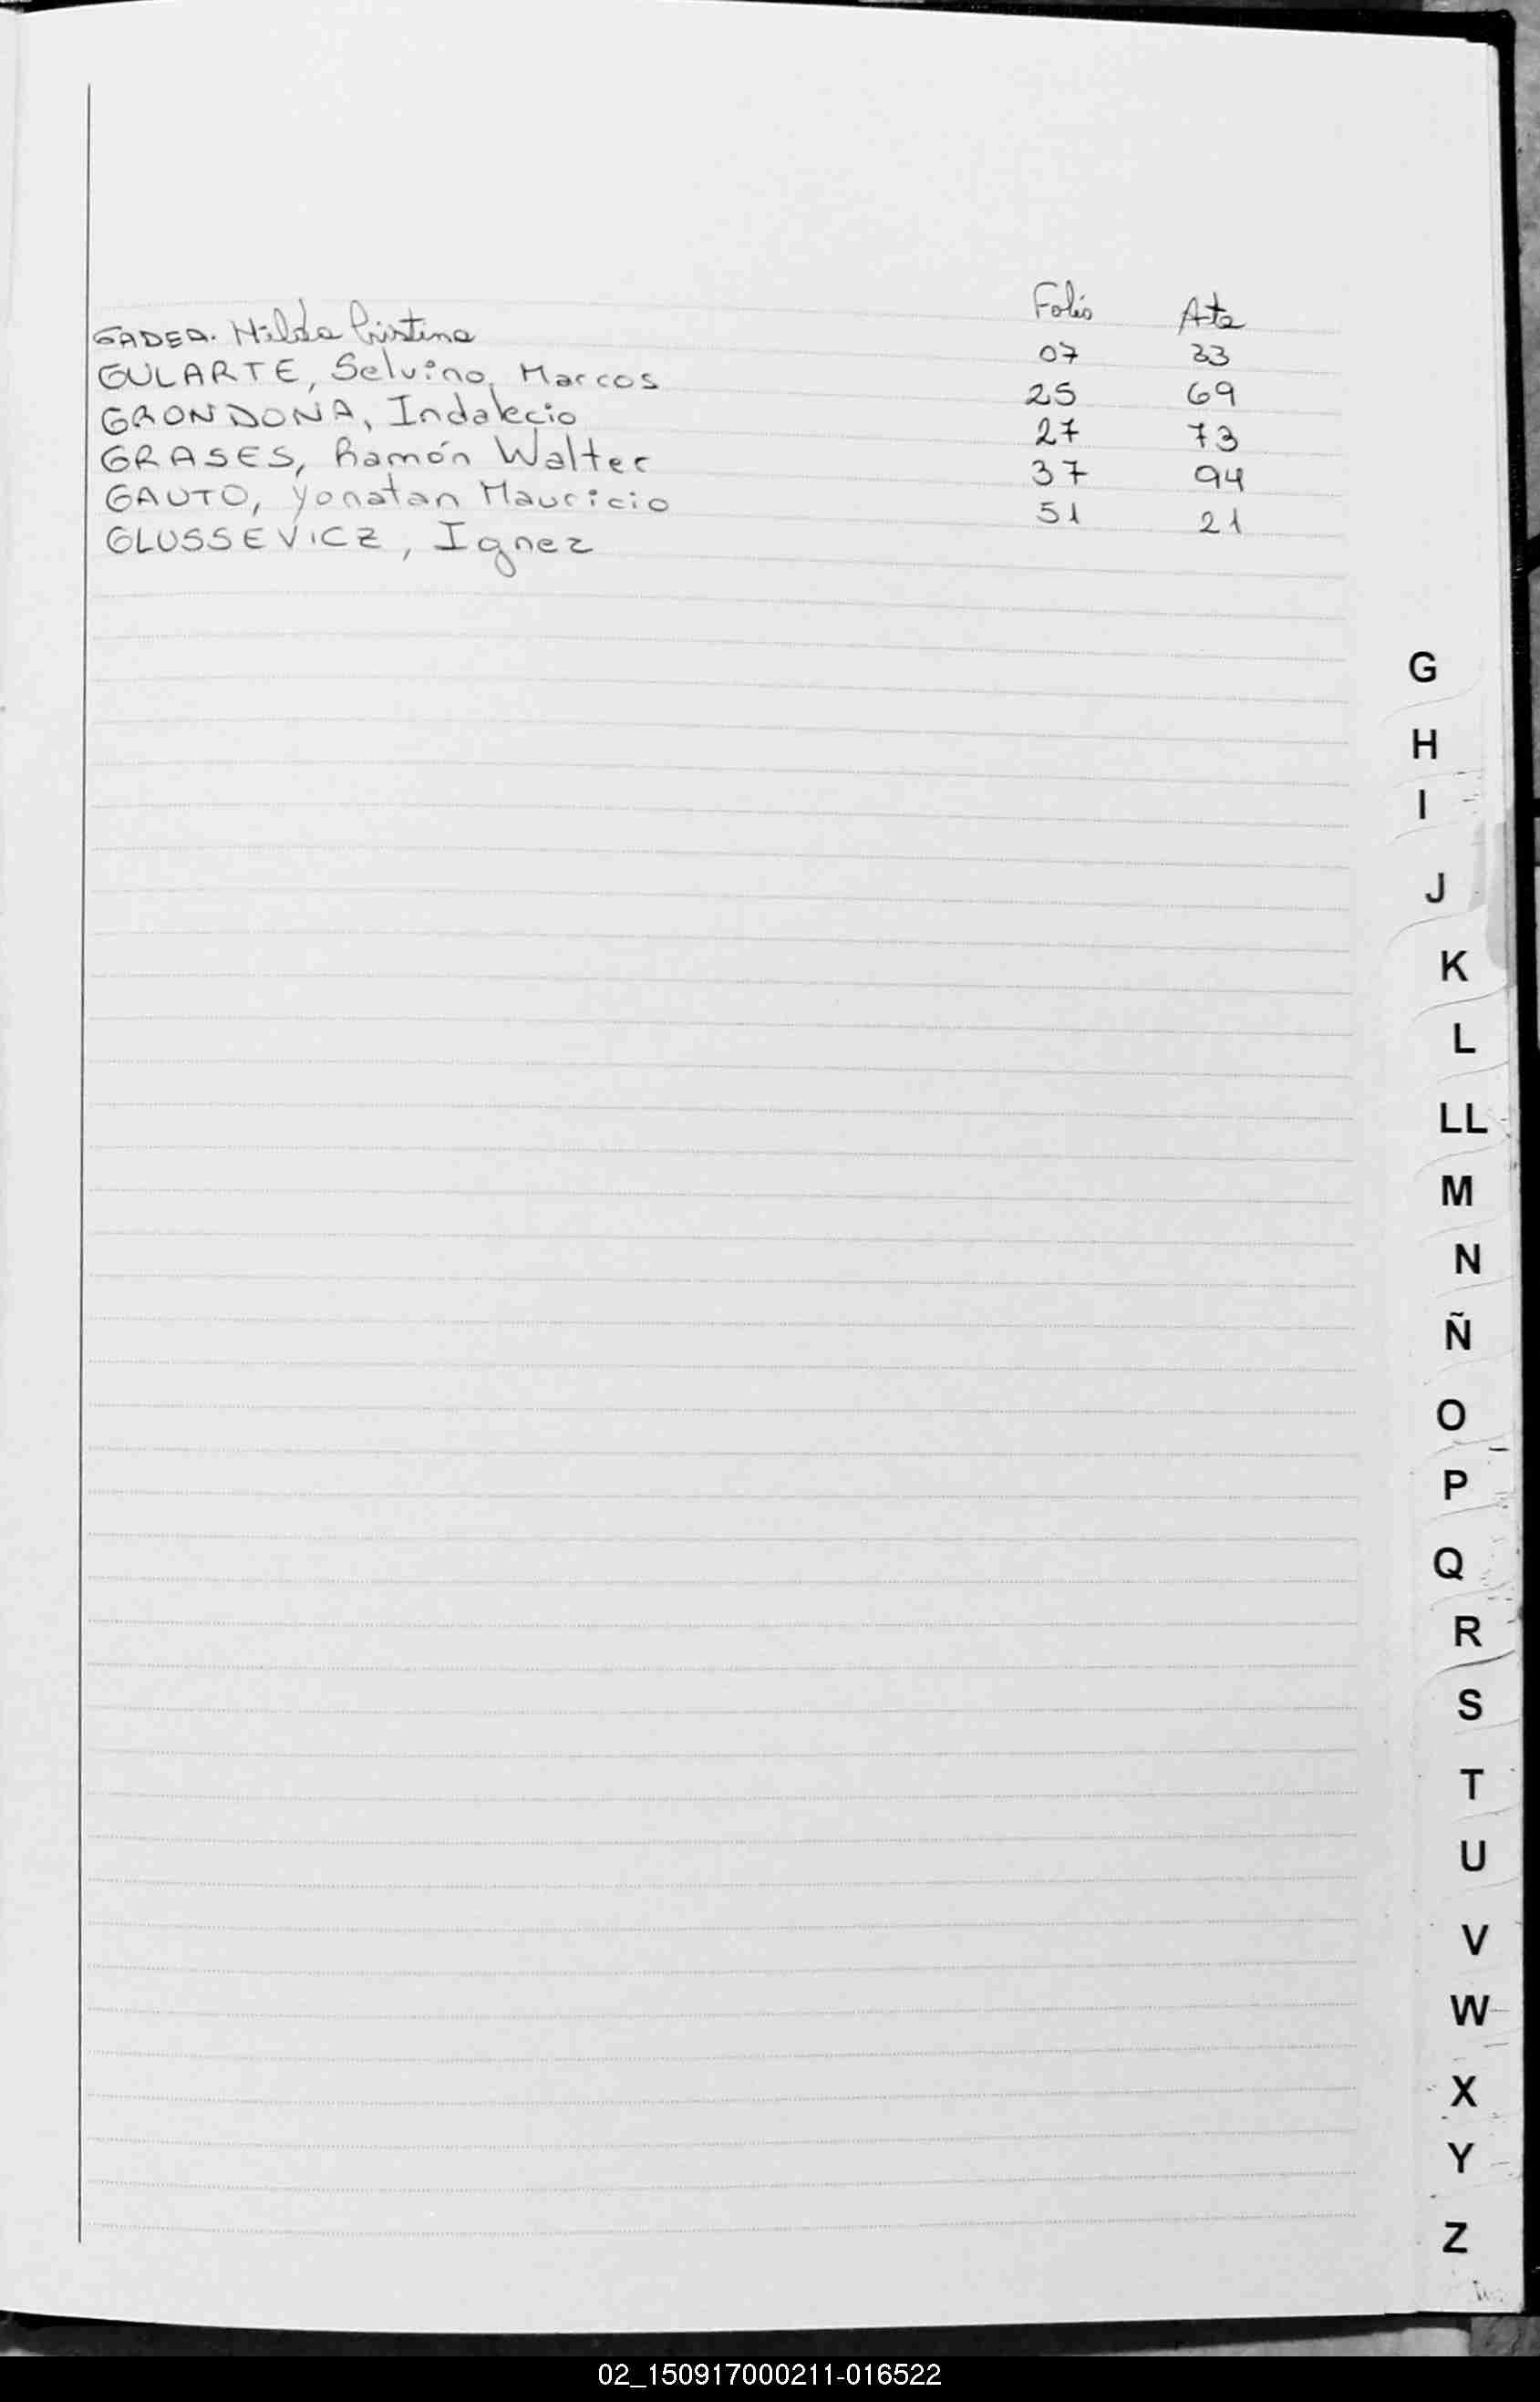 Folio Acta
GADEA. Hilda Cristina 07 33
GULARTE, Selvino, Marcos 25 69
GRONDONA, Indalecio 27 73
GRASES, Ramón Walter 37 94
GAUTO, Yonatan Mauricio 51 21
GLUSSEVICZ, Ignez
G
H
I
J
K
L
LL
M
N
Ñ
O
P
Q
R
S
T
U
V
W
X
Y
Z
02_150917000211-016522